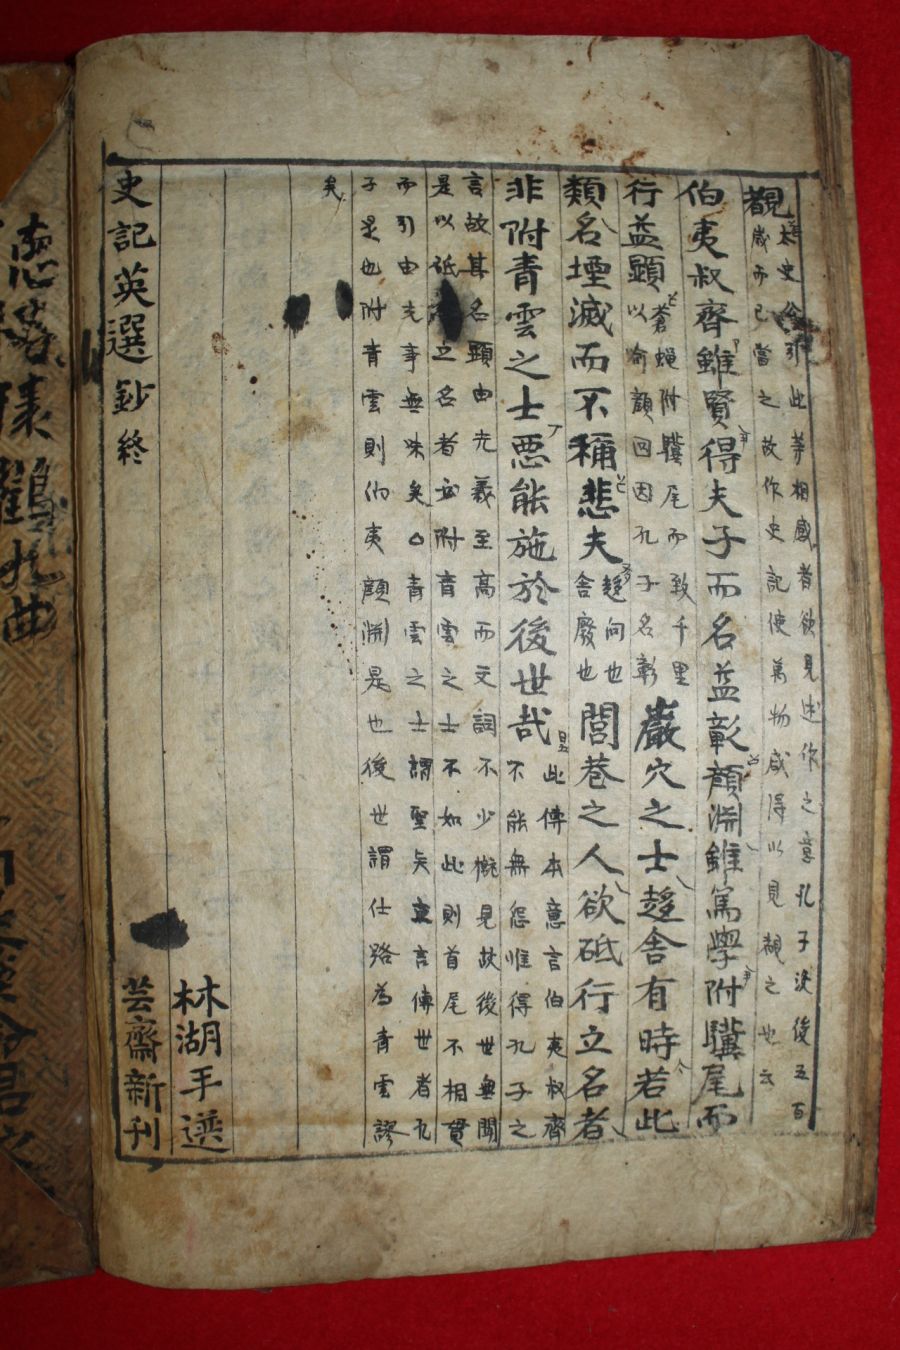 覩太史公引此等相感者欲見述作之意孔子沒後五百
歲而已當之故作史記使萬物咸得以見覩之也云
伯夷叔齊雖賢得夫子而名益彰顔淵雖篤學附驥尾而
行益顯蒼蝿附驥尾而致千里
以喩顔回因孔子名彰
巖穴之士趍舍有時若此
類名堙滅而不稱悲夫趍向也
舍廢也
閭巷之人欲砥行立名者
非附青雲之士悪能施於後世哉此傳本意言伯夷叔齊
不能無怨惟得孔子之
言故其名顯由光義至高而文詞不少槪見故後世無聞
是以砥行立名者必附青雲之士不如此則首尾不相貫
而引由光事無味矣○青雲之士謂聖矣立言傳世者孔
子是也附青雲則伯夷顔淵是也後世謂仕路為青雲謬
矣
林湖手選
史記英選鈔終
芸齋新刊